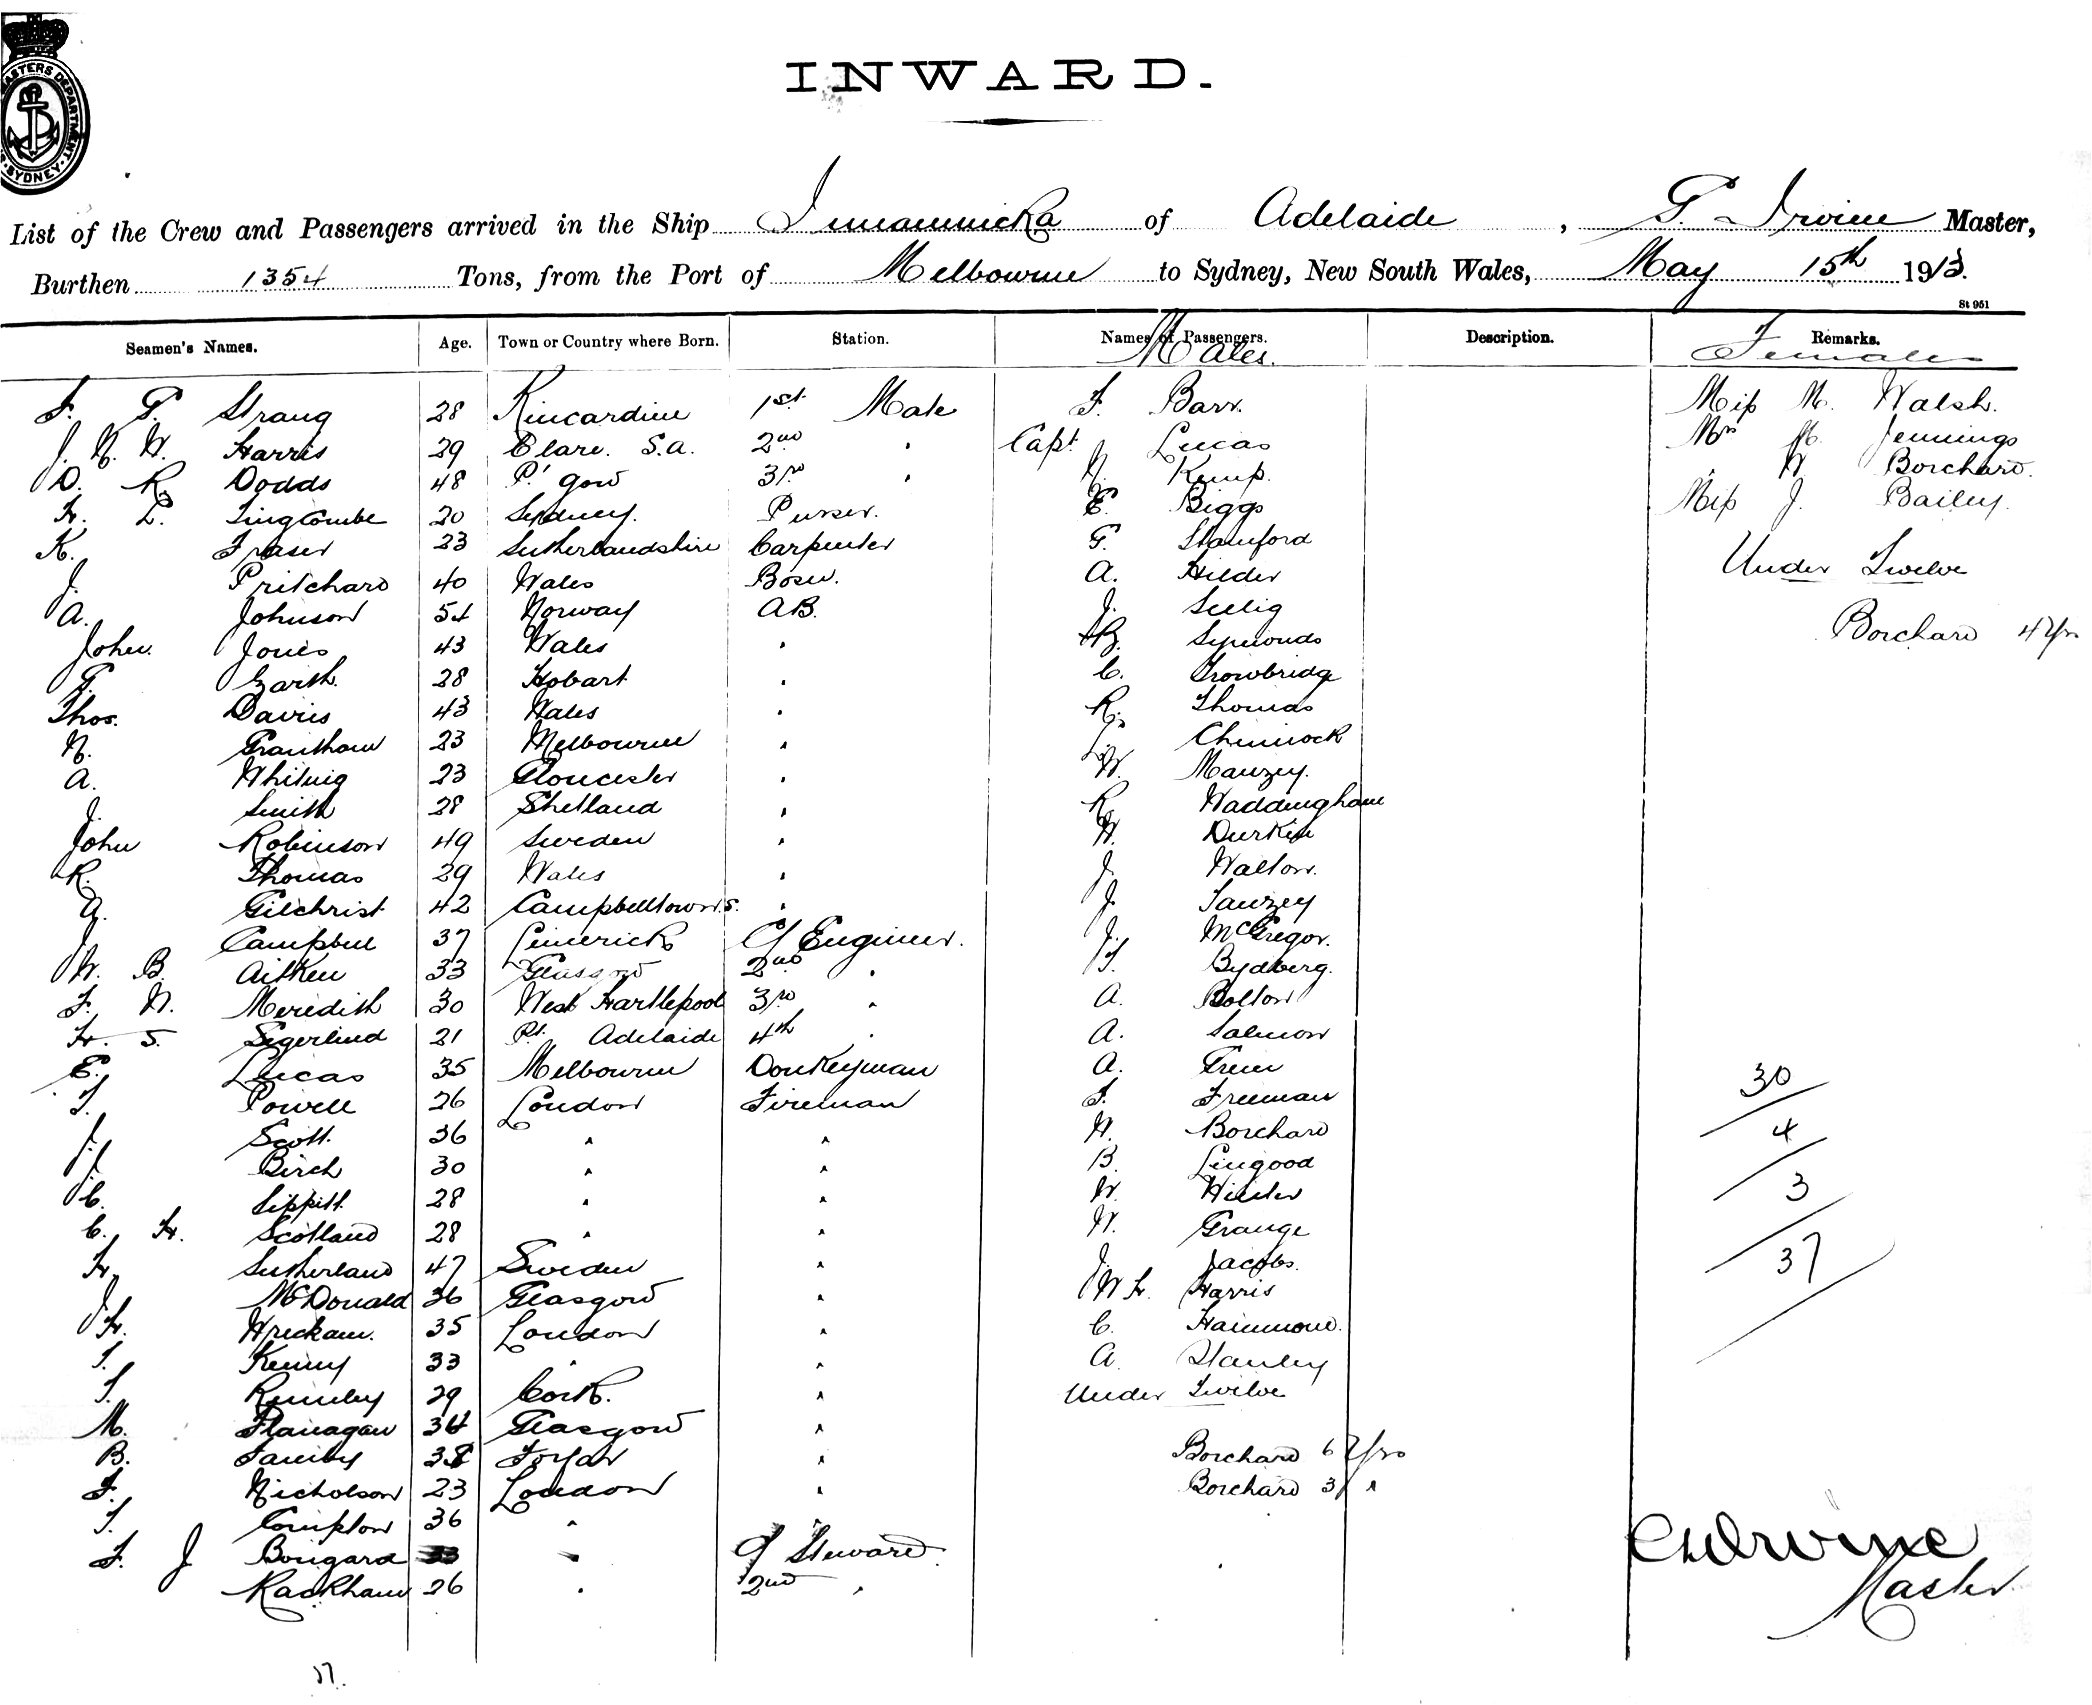 INWARD.
MASTERS DEPARTMENT SYDNEY
List of the Crew and Passengers arrived in the Ship of Adelaide, G. Irvine Master,
Burthen 1354 Tons, from the Port of Melbourne to Sydney, New South Wales, May 15th 1913.
St 951
Seamen's Names. Age. Town or Country where Born. Station. Names of Passengers. Description. Remarks.
Males. Females
F. G. Strang 28 Kincardine 1st Mate F. Barr. Miss M. Walsh.
J. N. W. Harris 29 Clare. S.A. 2nd " Capt Lucas Mrs M. Jennings
D. R. Dodds 48 P. Gow 3rd " Kemp. " W. Borchard.
H. L. Lingcombe 20 Sydney. Purser. E. Biggs Miss J. Bailey.
K. Fraser 23 Sutherlandshire Carpenter G. Stamford
Under Twelve
J. Pritchard 40 Wales Bosn. A. Hilder
A. Johnson 54 Norway AB. J. Seelig
Borchard 4 Yrs
John Jones 43 Wales " Symonds
G. Garth. 28 Hobart " C. Trowbridge
Thos. Davies 43 Wales " R. Thomas
N. Grantham 23 Melbourne " Chinnock
A. Whiting 23 Gloucester " W. Manzey.
J. Smith 28 Shetland " R. Waddingham
John Robinson 49 Sweden " W. Durkin
R. Thomas 29 Wales " J. Walton.
Gilchrist 42 Campbelltown S. " J. Tanzey
J. Campbell 37 Limerick C/ Engineer. J. McGregor.
W. B. Aitken 33 Glasgow 2nd " T. Bydberg.
F. N. Meredith 30 West Hartlepool 3rd " A. Bolton
H. S. Sigerlind 21 Pt. Adelaide 4th " A. Salmon
E. Lucas 35 Melbourne Donkeyman A.
30
T. Powell 26 London Fireman F. Freeman
J. Scott. 36 " " N. Borchard
4
J. Birch 30 " " B. Lingood
C. Lippitt. 28 " " W. Winter
3
C. H. Scotland 28 " " W. Grange
H. Sutherland 47 Sweden " J. Jacobs.
37
J. McDonald 36 Glasgow " W H. Harris
H. Wreckam. 35 London " C. Hammond.
T. Kenny 33 " " A. Stanley
T. 29 Cork. " Under Twelve
M. Flanagan 34 Glasgow "
B. 38 Forfar " Borchard 6 Yrs
F. Nicholson 23 London " Borchard 3 "
T. Compton 36 " "
F. J Bongard 33 " C/ Steward.
Rackham 26 " 2nd "
Irvine
Master.
37.